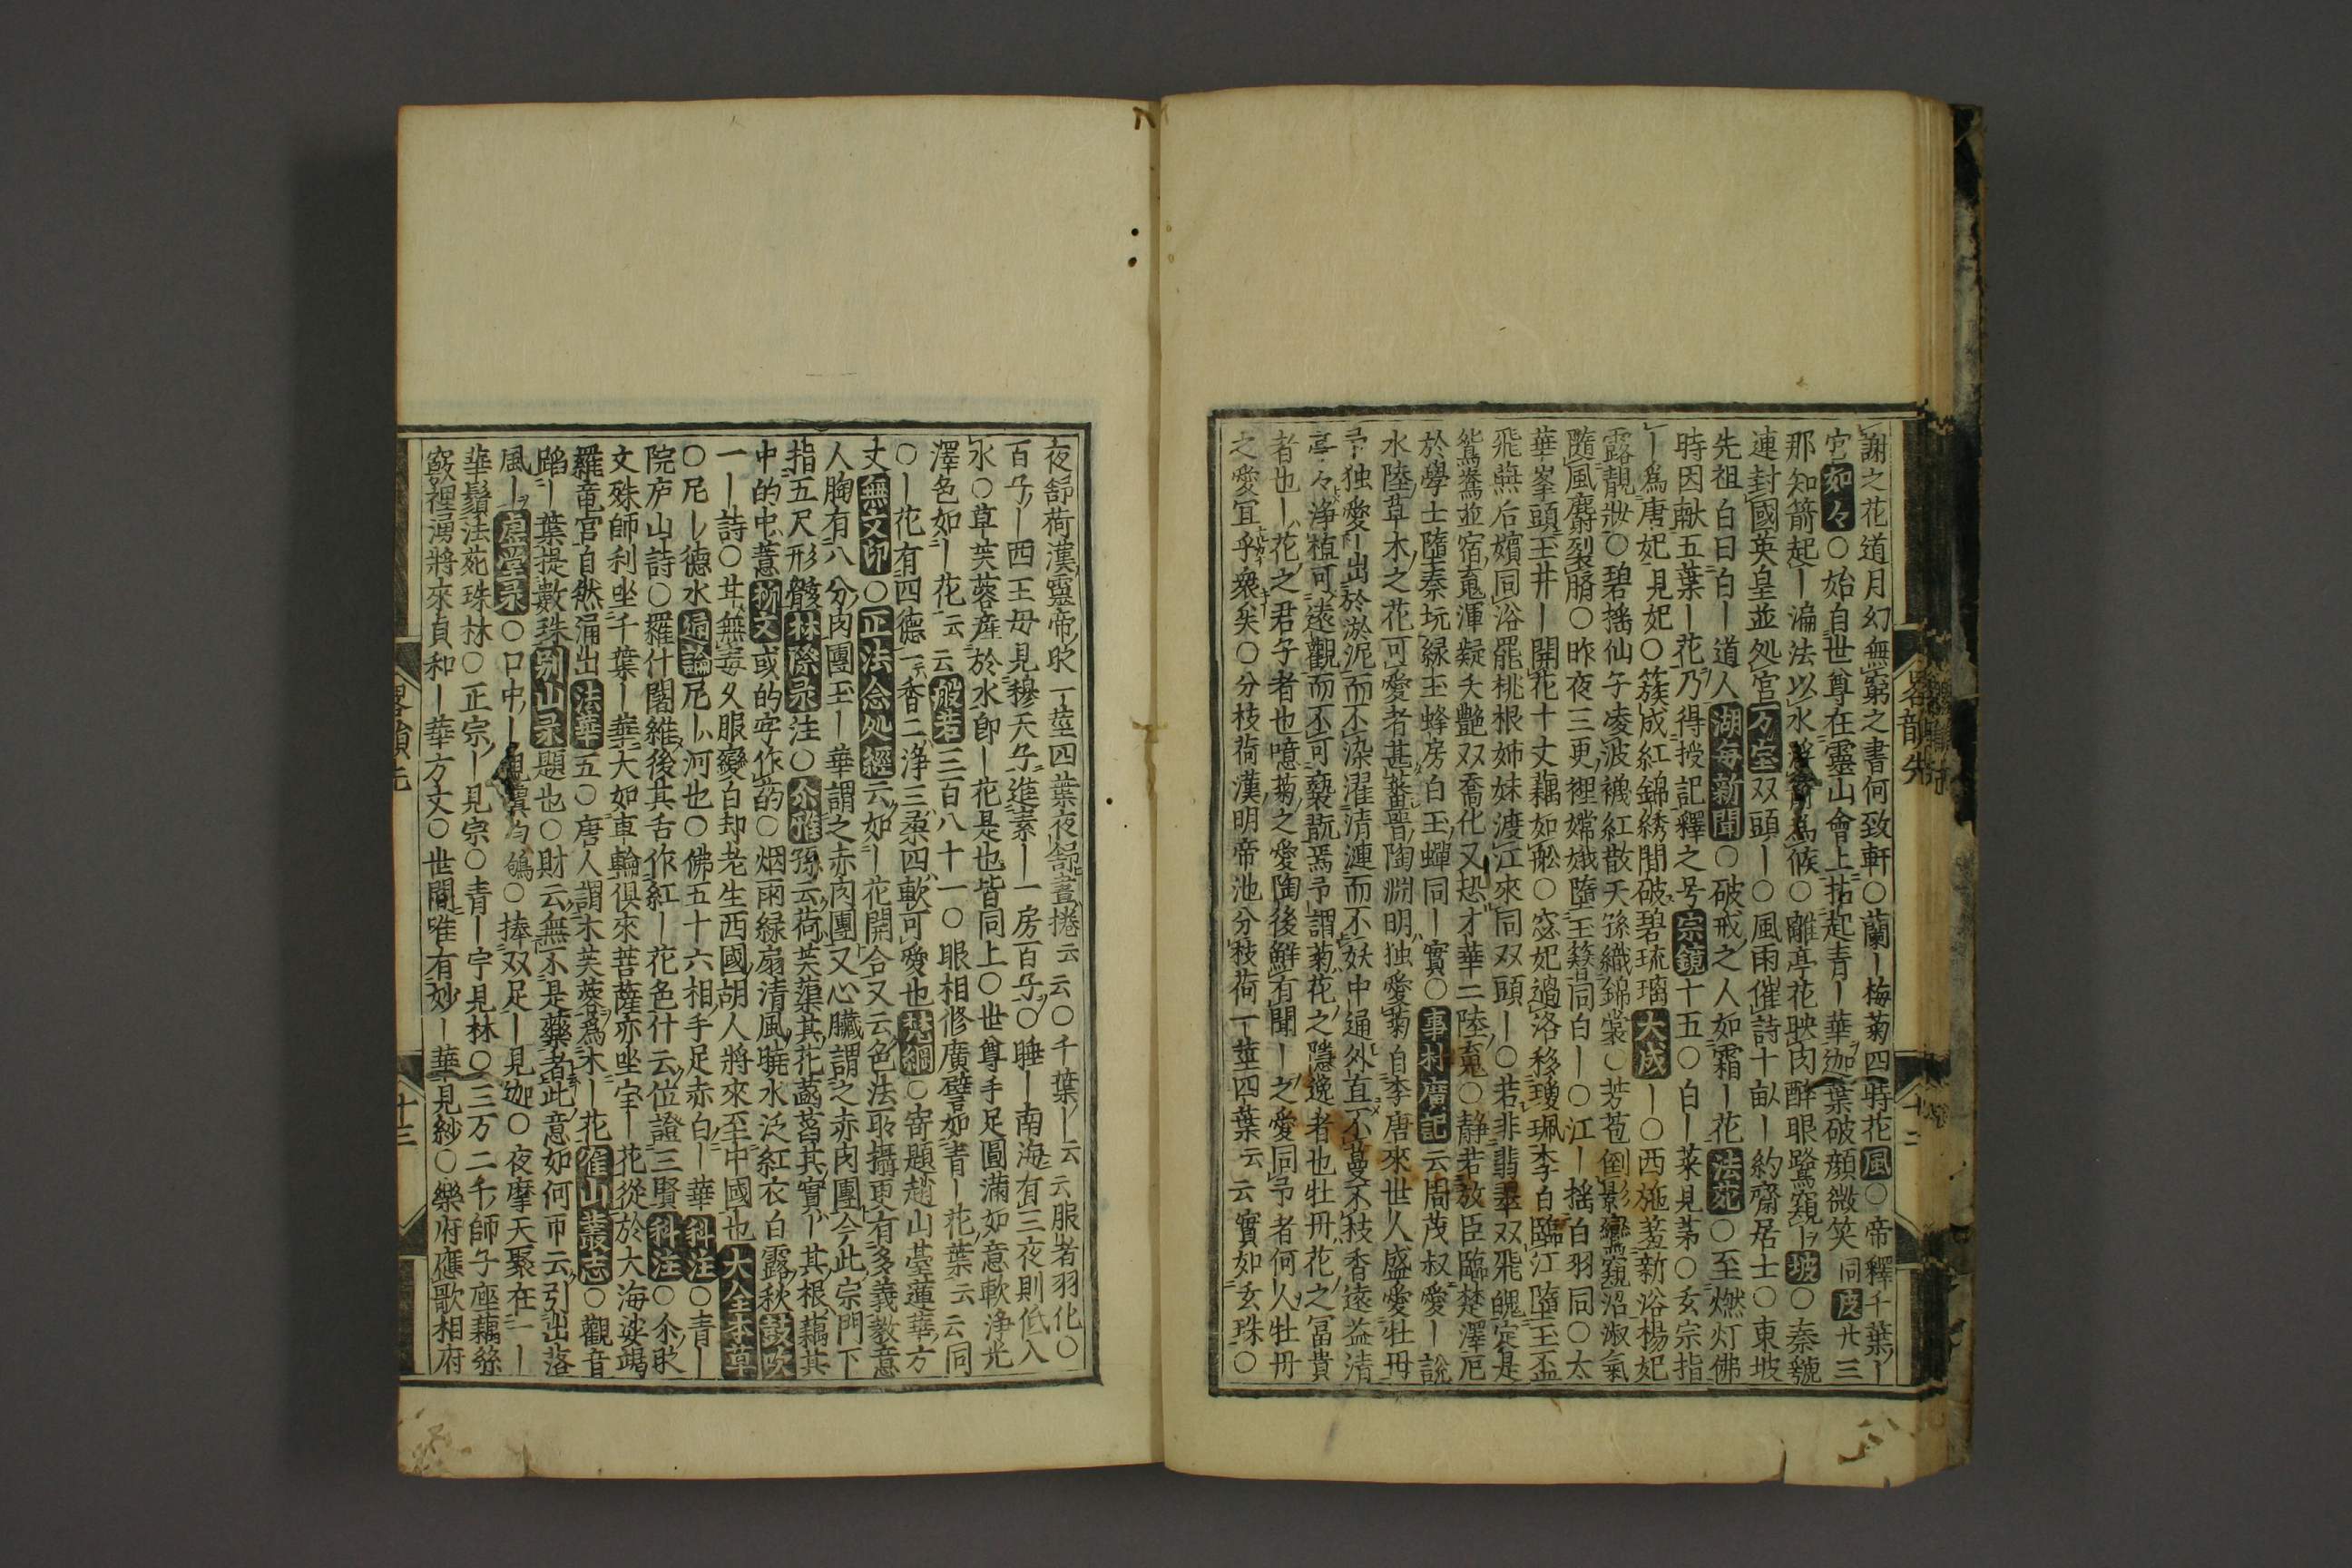 謝之花道月幻無窮之書何致軒○蘭ー梅菊四時花風○帝釋千葉ー
宮如々○始自世尊在靈山會上拈起青ー華迦葉破顔微笑同皮廿三
那知箭起ー漏法以水為候○離亭花映肉醉眼鷺窺ー坡○秦虢
連封國英皇並処宮万室双頭ー○風雨催詩十畝ー約齋居士○東坡
先祖白日白ー道人湖海新聞○破戒之人如霜ー花法苑○至燃灯佛
時因献五葉ー花乃得授記釋之号宗鏡十五○白ー菜見茅○玄宗指
ー為唐妃見妃○簇成紅錦綉閒破碧琉璃大成ー○西施羞新浴楊妃
露靚妝○碧搖仙子凌波襪紅散天孫織錦裳○芳苞倒影鸞窺沼淑氣
隨風麝裂臍○昨夜三更裡嫦娥墮玉簪同白ー○江ー搖白羽同○太
華峯頭玉井ー開花十丈藕如舩○宓妃過洛移瓊珮李白臨江墮玉盃
飛燕后嬪同浴罷桃根姉妹渡江來同双頭ー○若非翡翠双飛魄定是
鴛鴦並宿魂渾疑夭艶双喬化又恐才華二陸魂○静若放臣臨楚澤厄
於學士隨王秦玩緑玉蜂房白玉蟬同ー實○事林廣記云周茂叔愛ー説
水陸草木之花可愛者甚蕃晋陶淵明独愛菊自李唐來世人盛愛牡丹
予独愛ー出於淤泥而不染濯清漣而不妖中通外直不蔓不枝香遠益清
亭々浄植可遠觀而不可褻翫焉予謂菊花之隱逸者也牡丹花之冨貴
者也ー花之君子者也噫菊之愛陶後鮮有聞ー之愛同予者何人牡丹
之愛宜乎衆矣○分枝荷漢明帝池分枝荷一莖四葉云云實如玄珠○
夜舒荷漢靈帝ー莖四葉夜舒晝捲云云○千葉ー云云服者羽化○
百子ー西王母見穆天子進素ー一房百子○睡ー南海有三夜則低入
水○草芙蓉産於水即ー花是也皆同上○世尊手足圓滿如意軟浄光
澤色如ー花云云般若三百八十一○眼相修廣譬如青ー花葉云云同
○ー花有四德一香二浄三柔四軟可愛也梵網○寄題趙山臺蓮華方
丈無文印○正法念処經云如ー花開合又云色法耶攝更有多義教意
人胸有八分肉團玉ー華謂之赤肉團又心臟謂之赤肉團今此宗門下
指五尺形骸林際录注○尒雅孫云荷芙蕖其花菡萏其實ー其根藕其
中的中薏柳文或的字作菂○烟雨緑扇清風曉水泛紅衣白露秋鼓吹
一ー詩○其無毒久服變白却老生西國胡人將來至中國也大全本草
○尼ー德水通論尼ー河也○佛五十六相手足赤白ー華科注○青ー
院庐山詩○羅什闍維後其舌作紅ー花色什云位證三賢科注○尒時
文殊師利坐千葉ー華大如車輪俱來菩薩亦坐宝ー花從於大海娑竭
羅竜宮自然涌出法華五○唐人謂木芙蓉為木ー花隺山叢志○觀音
蹈ー葉提數珠別山录題也○財云無不是藥者此意如何帀云引出落
風ー虚堂录○口中ー白鵒○捧双足ー見迦○夜摩天聚在一ー
華鬚法苑珠林○正宗ー見宗○青ー宇見林○三万二千師子座藕絲
竅裡湧將來貞和ー華方丈○世間唯有妙ー華見紗○樂府應歌相府